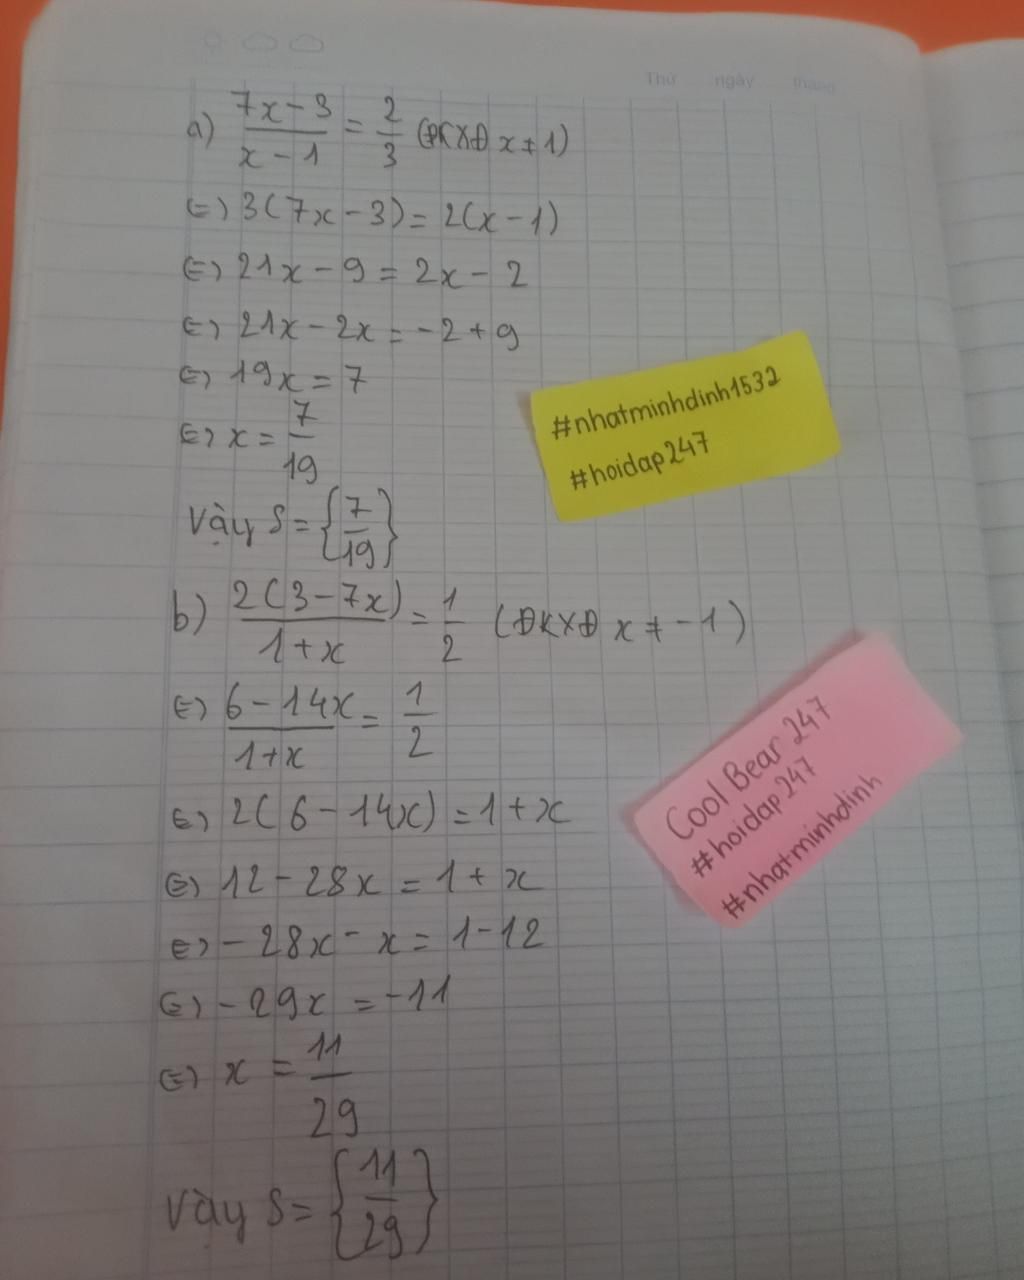 Thứ ngày tháng
a) \frac{7x-3}{x-1} = \frac{2}{3} (ĐKXĐ x ≠ 1)
<=> 3(7x-3) = 2(x-1)
<=> 21x - 9 = 2x - 2
<=> 21x - 2x = -2 + 9
<=> 19x = 7
<=> x = \frac{7}{19}
Vậy S = {\frac{7}{19}}
#nhatminhdinh1532
#hoidap247
b) \frac{2(3-7x)}{1+x} = \frac{1}{2} (ĐKXĐ x ≠ -1)
<=> \frac{6-14x}{1+x} = \frac{1}{2}
<=> 2(6-14x) = 1+x
<=> 12 - 28x = 1 + x
<=> -28x - x = 1 - 12
<=> -29x = -11
<=> x = \frac{11}{29}
Vậy S = {\frac{11}{29}}
Cool Bear 247
#hoidap247
#nhatminhdinh